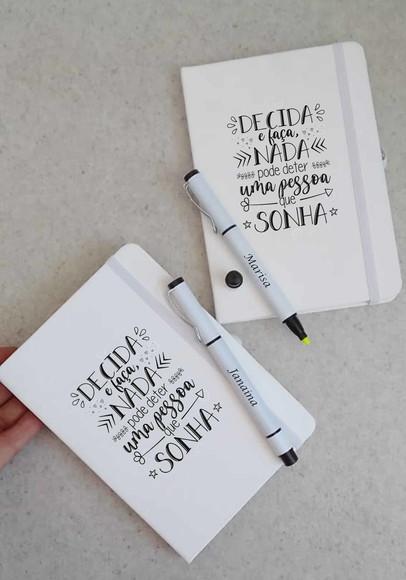 DECIDA
e faça,
NADA
pode deter
uma pessoa
que
SONHA
Marisa
DECIDA
e faça,
NADA
pode deter
uma pessoa
que
SONHA
Janaina